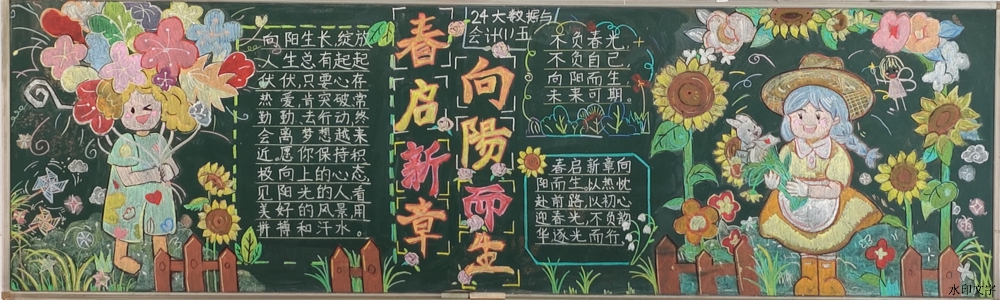 向阳生长,绽放
人生总有起起
伏伏只要心存
热爱肯突破常
勤勤去行动终
会离梦想越来
近。愿你保持积
极向上的心态,
见阳光的人看
美好的风景用
拼搏和汗水。
春启新章
向陽而生
24大数据与
会计(1)五
不负春光,
不负自己,
向阳而生,
未来可期。
春启新章向
阳而生以热忱
赴前路以初心
迎春光,不负韶
华逐光而行
水印文字